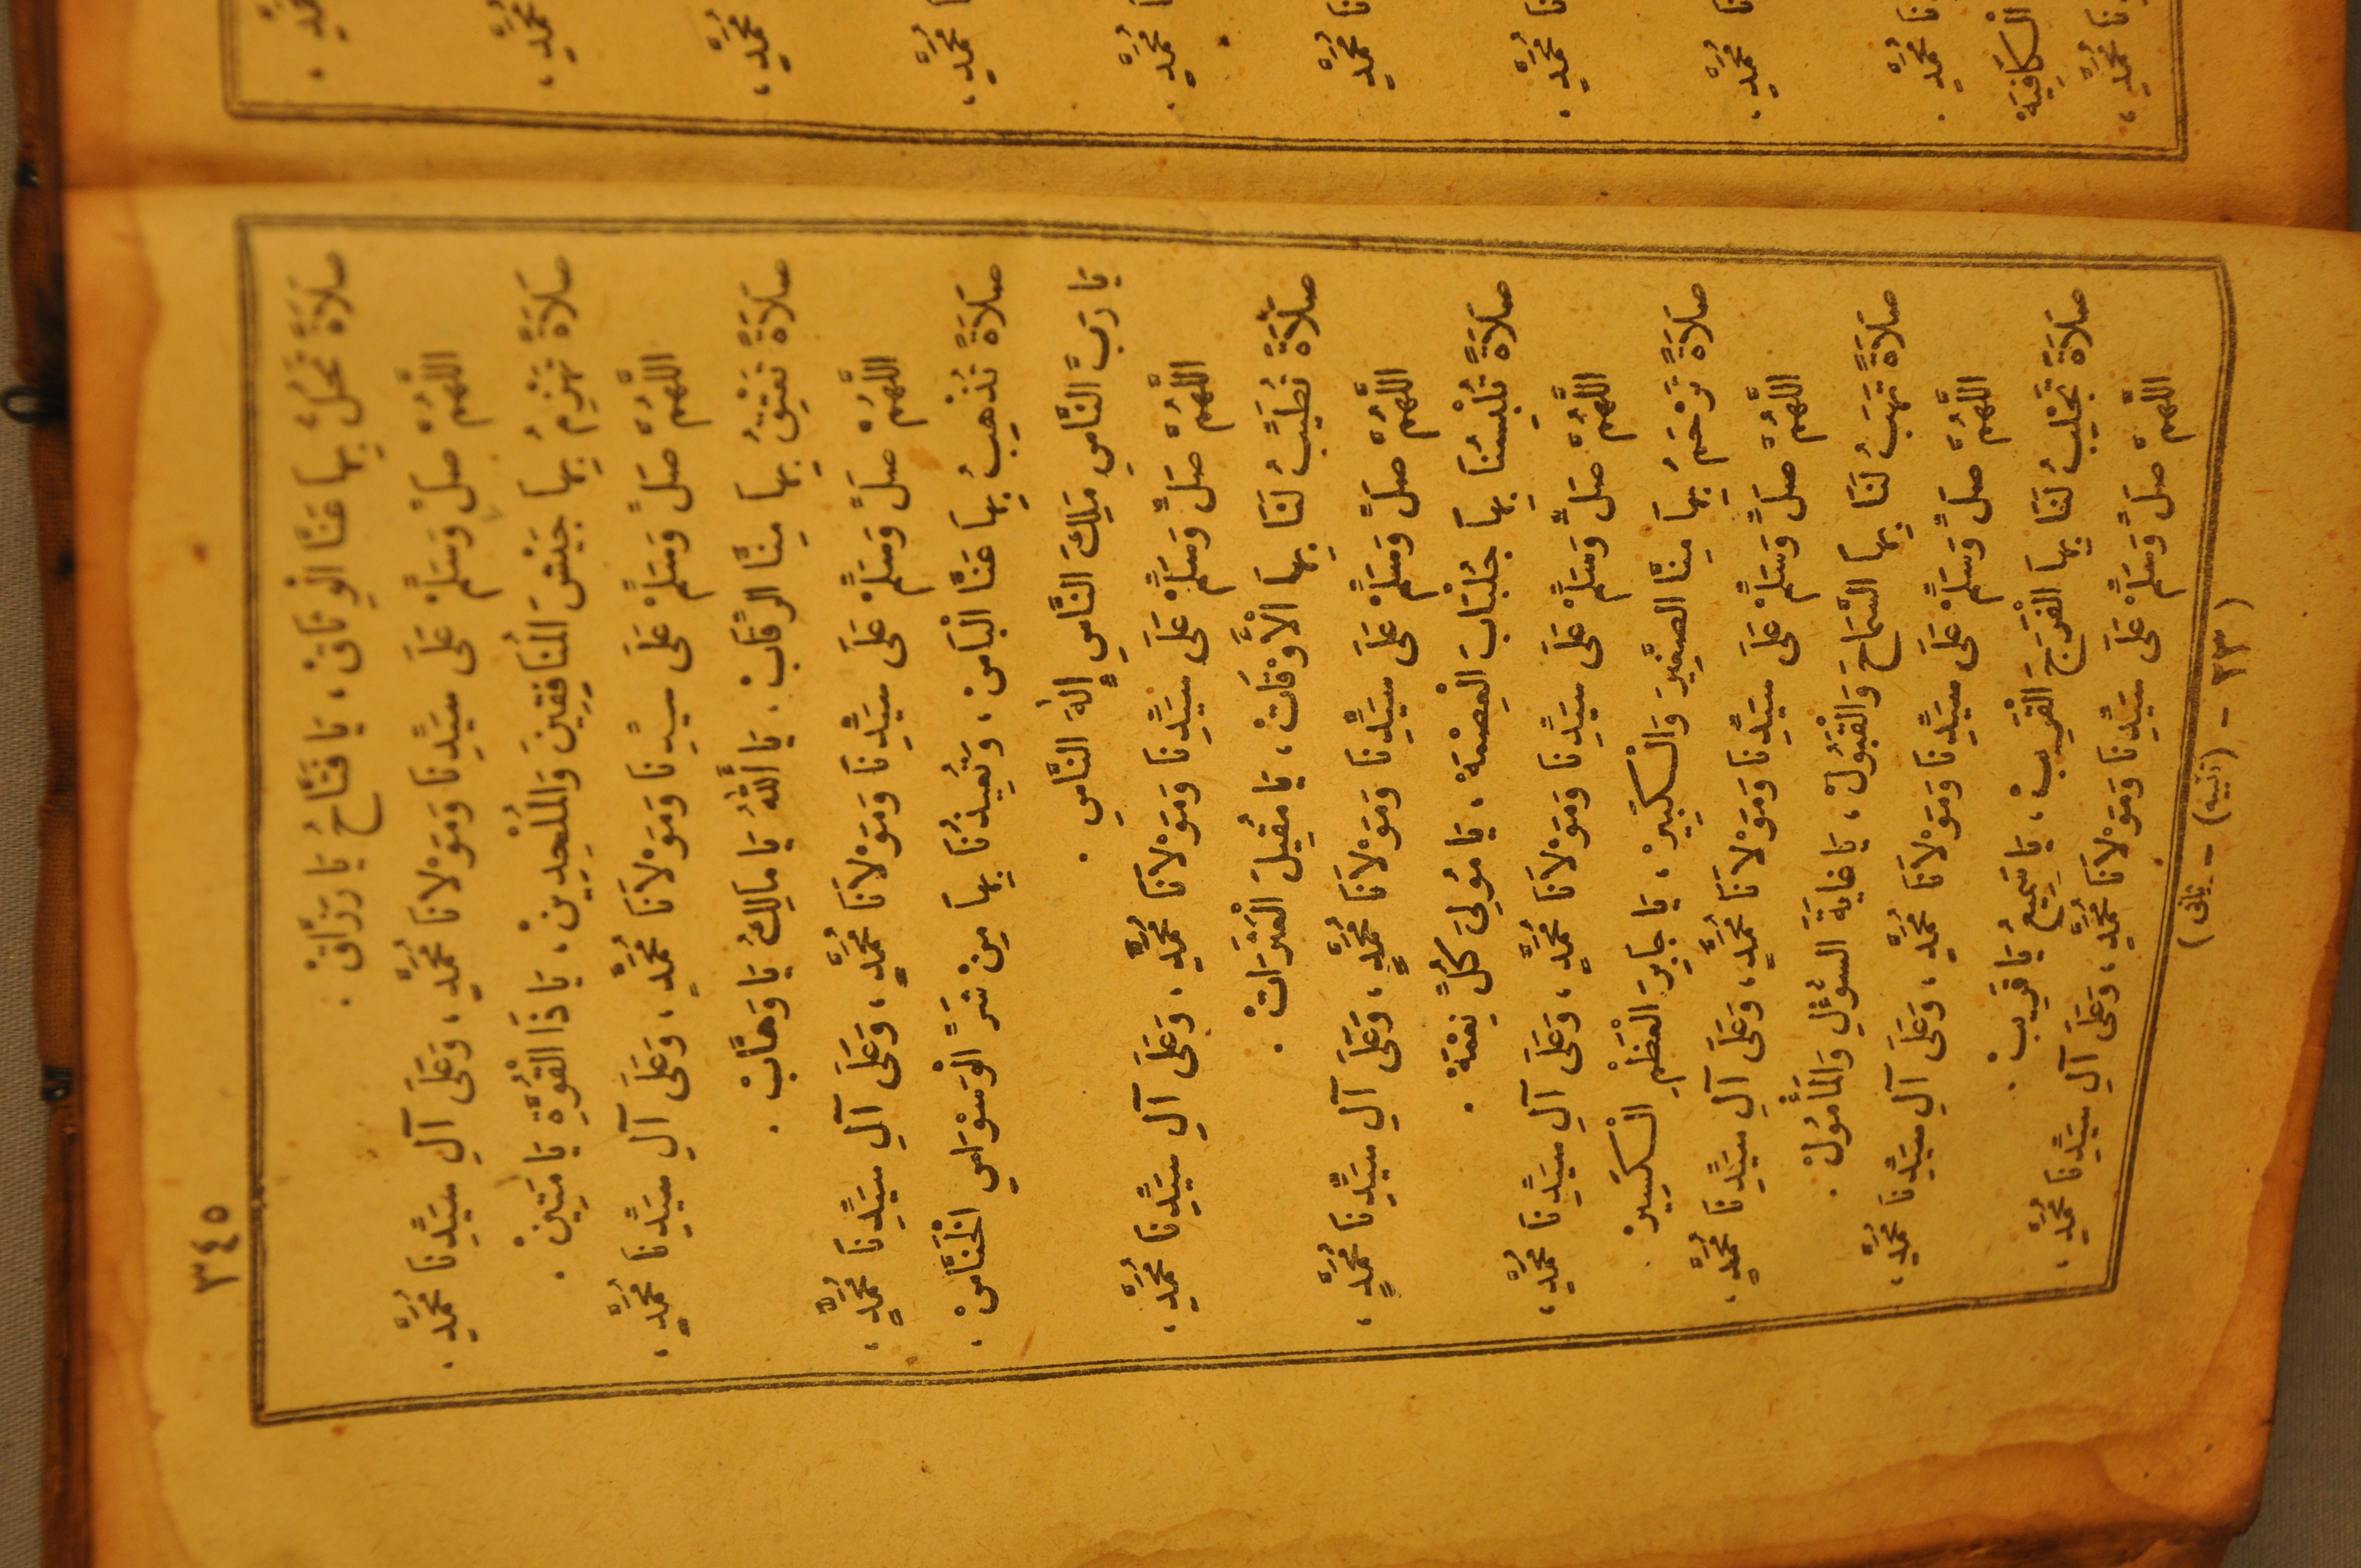 ٣٤٥
صَلَاةً تَحُلُّ بِهَا عَنَّا الْوِثَاقْ، يَا فَتَّاحُ يَا رَزَّاقْ.
اللَّهُمَّ صَلِّ وَسَلِّمْ عَلَى سَيِّدِنَا وَمَوْلَانَا مُحَمَّدٍ، وَعَلَى آلِ سَيِّدِنَا مُحَمَّدٍ.
صَلَاةً تَهْزِمُ بِهَا جَيْشَ الْمُنَافِقِينَ وَالْمُلْحِدِينْ، يَا ذَا الْقُوَّةِ يَا مَتِينْ.
اللَّهُمَّ صَلِّ وَسَلِّمْ عَلَى سَيِّدِنَا وَمَوْلَانَا مُحَمَّدٍ، وَعَلَى آلِ سَيِّدِنَا مُحَمَّدٍ،
صَلَاةً تَعْتِقُ بِهَا مِنَّا الرِّقَابْ. يَا أَللهُ يَا مَالِكُ يَا وَهَّابْ.
اللَّهُمَّ صَلِّ وَسَلِّمْ عَلَى سَيِّدِنَا وَمَوْلَانَا مُحَمَّدٍ، وَعَلَى آلِ سَيِّدِنَا مُحَمَّدٍ،
صَلَاةً تُذْهِبُ بِهَا عَنَّا الْبَاسْ، وَتُعِيذُنَا بِهَا مِنْ شَرِّ الْوَسْوَاسِ الْخَنَّاسْ.
يَا رَبَّ النَّاسِ مَلِكَ النَّاسِ إِلٰهَ النَّاسِ.
اللَّهُمَّ صَلِّ وَسَلِّمْ عَلَى سَيِّدِنَا وَمَوْلَانَا مُحَمَّدٍ، وَعَلَى آلِ سَيِّدِنَا مُحَمَّدٍ،
صَلَاةً تُطَيِّبُ لَنَا بِهَا الْأَوْقَاتْ، يَا مُقِيلَ الْعَثَرَاتْ.
اللَّهُمَّ صَلِّ وَسَلِّمْ عَلَى سَيِّدِنَا وَمَوْلَانَا مُحَمَّدٍ، وَعَلَى آلِ سَيِّدِنَا مُحَمَّدٍ،
صَلَاةً تُلْبِسُنَا بِهَا جُلْبَابَ الْعِصْمَةْ، يَا مُولِيَ كُلِّ نِعْمَةْ.
اللَّهُمَّ صَلِّ وَسَلِّمْ عَلَى سَيِّدِنَا وَمَوْلَانَا مُحَمَّدٍ، وَعَلَى آلِ سَيِّدِنَا مُحَمَّدٍ،
صَلَاةً تَرْحَمُ بِهَا مِنَّا الصَّغِيرَ وَالْكَبِيرْ، يَا جَابِرَ الْعَظْمِ الْكَسِيرْ.
اللَّهُمَّ صَلِّ وَسَلِّمْ عَلَى سَيِّدِنَا وَمَوْلَانَا مُحَمَّدٍ، وَعَلَى آلِ سَيِّدِنَا مُحَمَّدٍ.
صَلَاةً تَهَبُ لَنَا بِهَا السَّمَاحَ وَالْقَبُولْ، يَا غَايَةَ السُّؤْلِ وَالْمَأْمُولْ.
اللَّهُمَّ صَلِّ وَسَلِّمْ عَلَى سَيِّدِنَا وَمَوْلَانَا مُحَمَّدٍ، وَعَلَى آلِ سَيِّدِنَا مُحَمَّدٍ،
صَلَاةً تَجْلِبُ لَنَا بِهَا الْفَرَجَ الْقَرِيبْ، يَا سَمِيعُ يَا قَرِيبْ.
اللَّهُمَّ صَلِّ وَسَلِّمْ عَلَى سَيِّدِنَا وَمَوْلَانَا مُحَمَّدٍ، وَعَلَى آلِ سَيِّدِنَا مُحَمَّدٍ،
(٢٣ – (تنبيه) – ثانى)
مُحَمَّدٍ،
مُحَمَّدٍ،
مُحَمَّدٍ،
مُحَمَّدٍ،
مُحَمَّدٍ.
نَا مُحَمَّدٍ
نَا مُحَمَّدٍ.
نَا مُحَمَّدٍ.
نَا مُحَمَّدٍ.
الْكَافِيَةْ
نَا مُحَمَّدٍ،